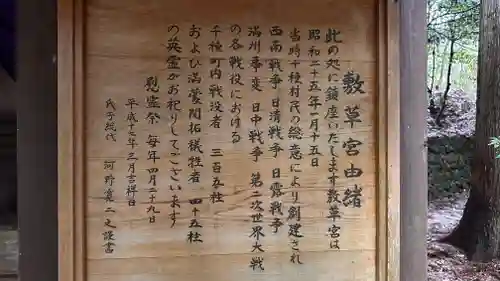 敷草宮由緒
此の処に鎮座いたします敷草宮は
昭和二十五年一月十五日
当時千種村民の総意により創建され
西南戦争 日清戦争 日露戦争
満州事変 日中戦争 第二次世界大戦
の各戦役における
千種町内戦没者 三百五柱
および満蒙開拓犠牲者 四十五柱
の英霊がお祀りしてございます
慰霊祭 毎年四月二十九日
年三月吉祥日
氏子総代 河野
謹書